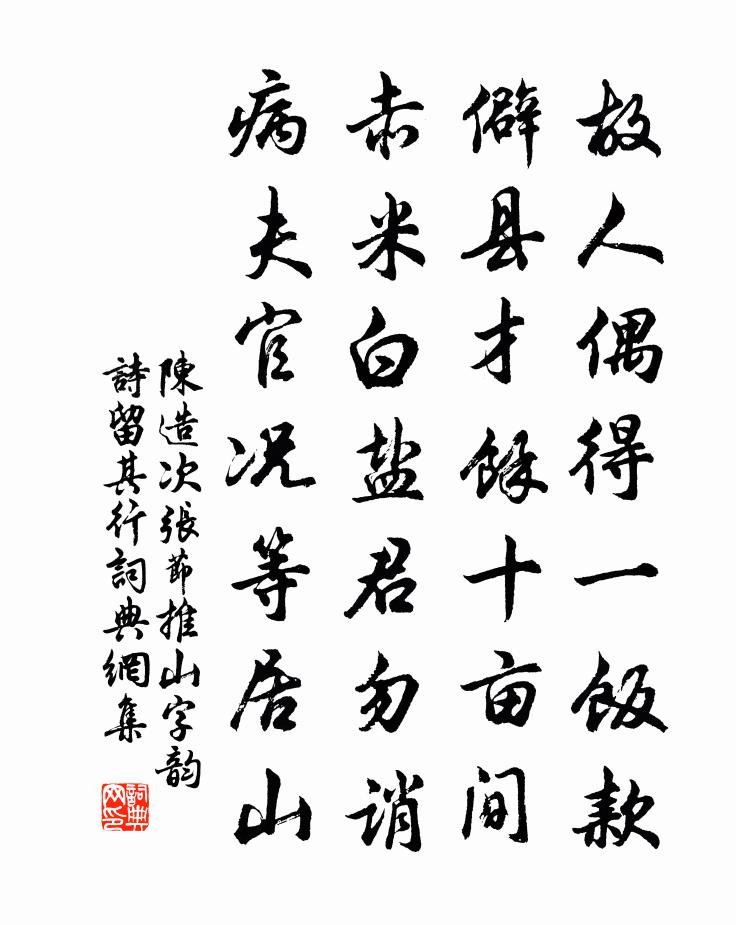 故人偶得一饭款
僻县才馀十亩间
赤米白盐君勿诮
病夫官况等居山
陳造次張節推山字韵
詩留其行詞典網集
詞典网印